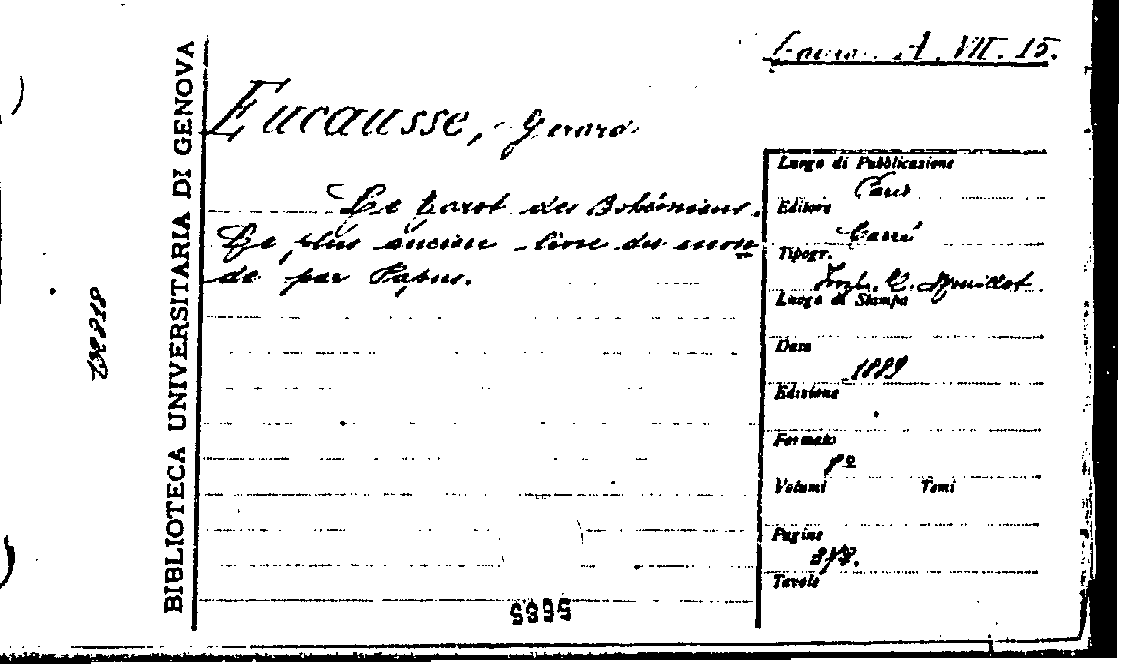 A. VII. 15.
BIBLIOTECA UNIVERSITARIA DI GENOVA
Eucausse, Gerard
Le tarot des Bohémiens.
Le plus ancien livre du mon
de par Papus.
Luogo di Pubblicazione
Paris
Editore
Carré
Tipogr.
Luogo di Stampa
Data
1889
Edizione
Formato
8º
Volumi Tomi
Pagine
Tavole